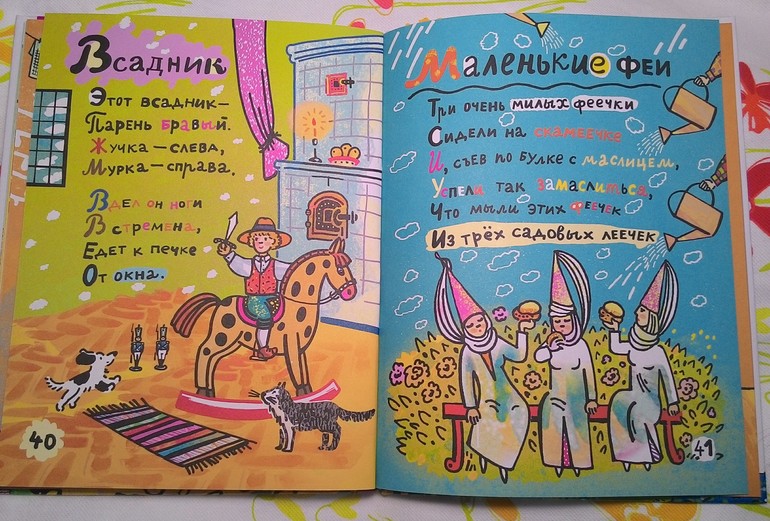 Всадник
Этот всадник—
Парень бравый.
Жучка—слева,
Мурка—справа.
Вдел он ноги
В стремена,
Едет к печке
От окна.
40
Маленькие феи
Три очень милых феечки
Сидели на скамеечке
И, съев по булке с маслицем,
Успели так замаслиться,
Что мыли этих феечек
Из трёх садовых леечек
41